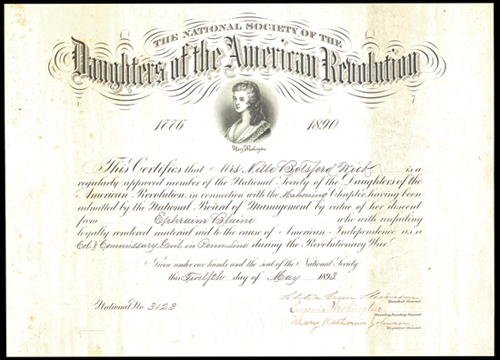 THE NATIONAL SOCIETY OF THE
Daughters of the American Revolution
1776 1890
Mary Washington
This Certifies that Mrs Nelle Botsford Wick is a
regularly approved member of the National Society of the Daughters of the
American Revolution, in connection with the Mahoning Chapter, having been
admitted by the National Board of Management by virtue of her descent
from Ephraim Blaine who with unfailing
loyalty rendered material aid to the cause of American Independence as a
Col. & Commissary Genl in Penn Line during the Revolutionary War
Given under our hands and the seal of the National Society
this Twelfth day of May 1893
National No 3123
President General
Eugenia Washington
Mary Katharine Johnson
Registrar General